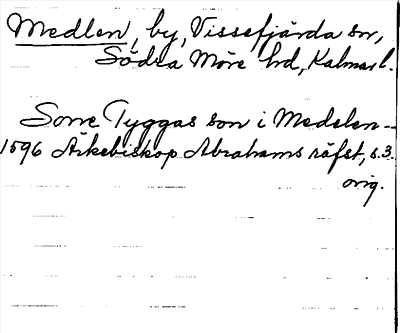 Medlen, by, Vissefjärda sn,
Södra Möre hd, Kalmar l.
Sone Tyggas son i Medelen --
1596 Ärkebiskop Abrahams räfst, s. 3.
orig.